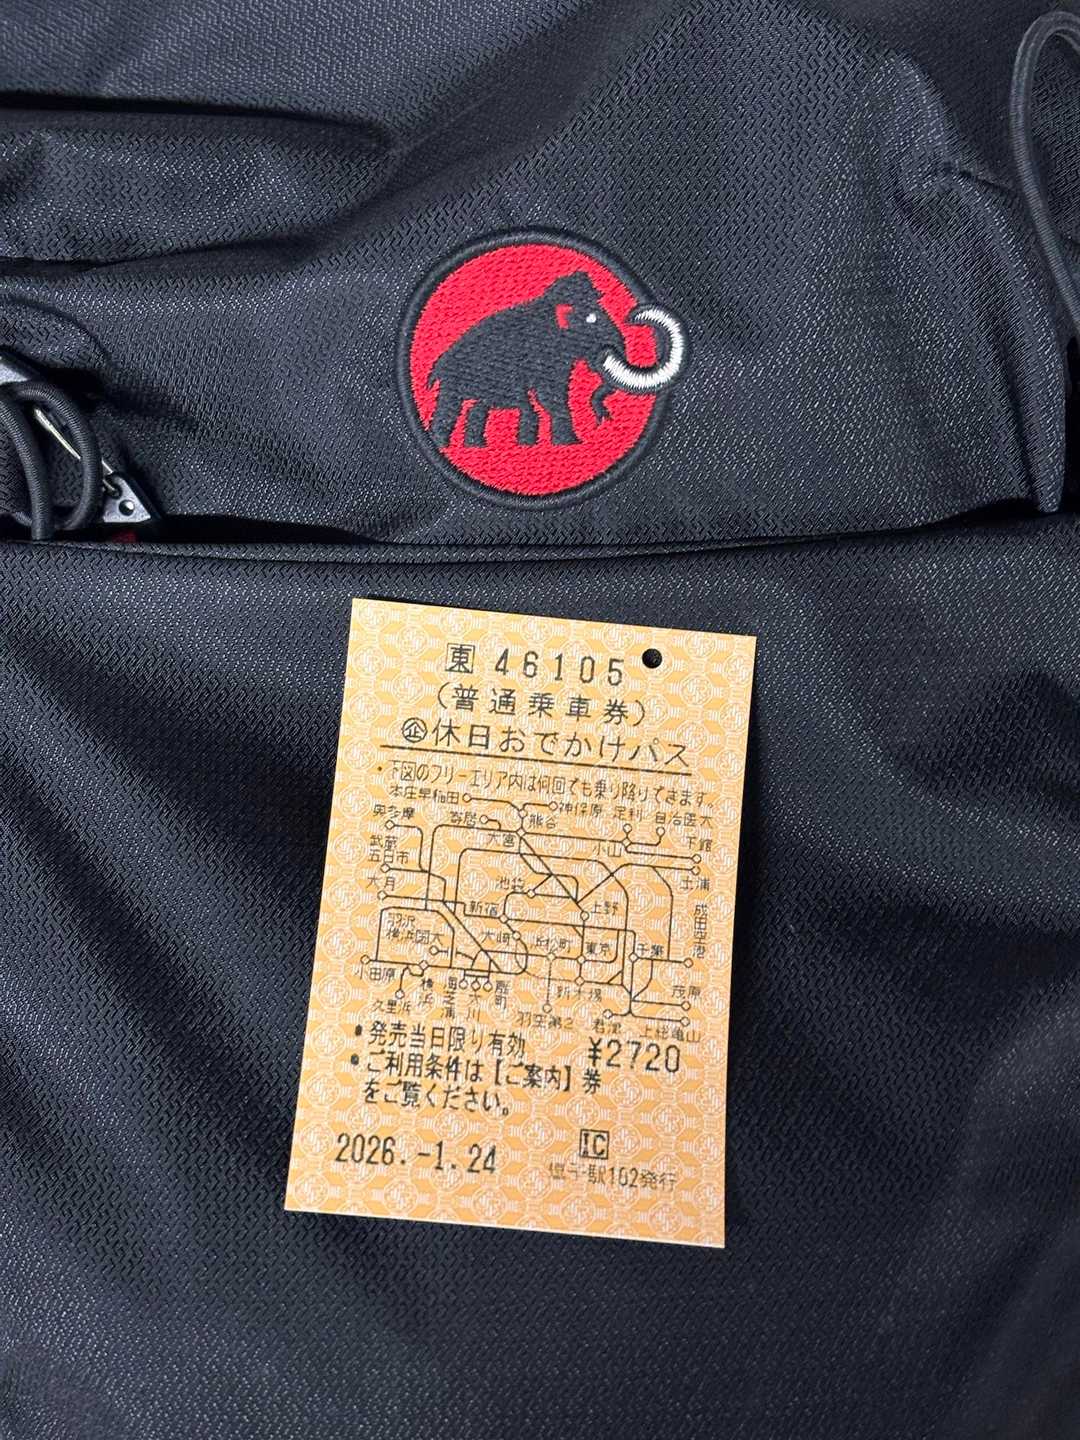 東 46105
(普通乗車券)
企休日おでかけパス
・下図のフリーエリア内は何回でも乗り降りできます。
本庄早稲田
神保原 足利 自治医大
奥多摩
寄居
熊谷
武蔵五日市
大宮
小山
下館
大月
池袋
土浦
新宿
上野
成田空港
羽沢横浜国大
大崎
浜松町
東京
千葉
小田原
横浜
海芝浦
大川
扇町
新木場
茂原
久里浜
羽空第2
君津
上総亀山
・発売当日限り有効
¥2720
・ご利用条件は【ご案内】券
をご覧ください。
2026.-1.24
IC
塩ラ-駅102発行